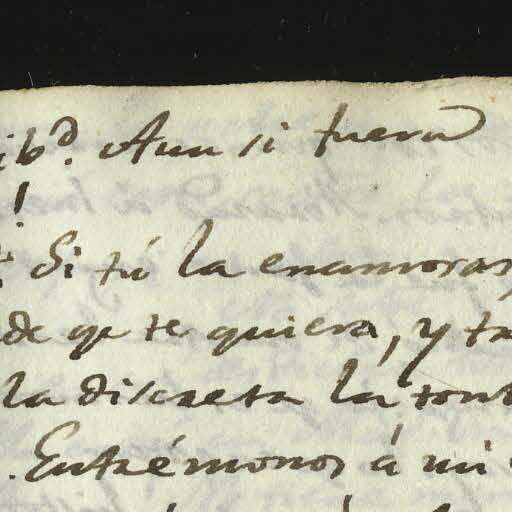 ibd. Aun si fuera
!
Si tú la enamoras,
de qe te quiera, y tra
la discreta la tont
. Entrémonos á mi